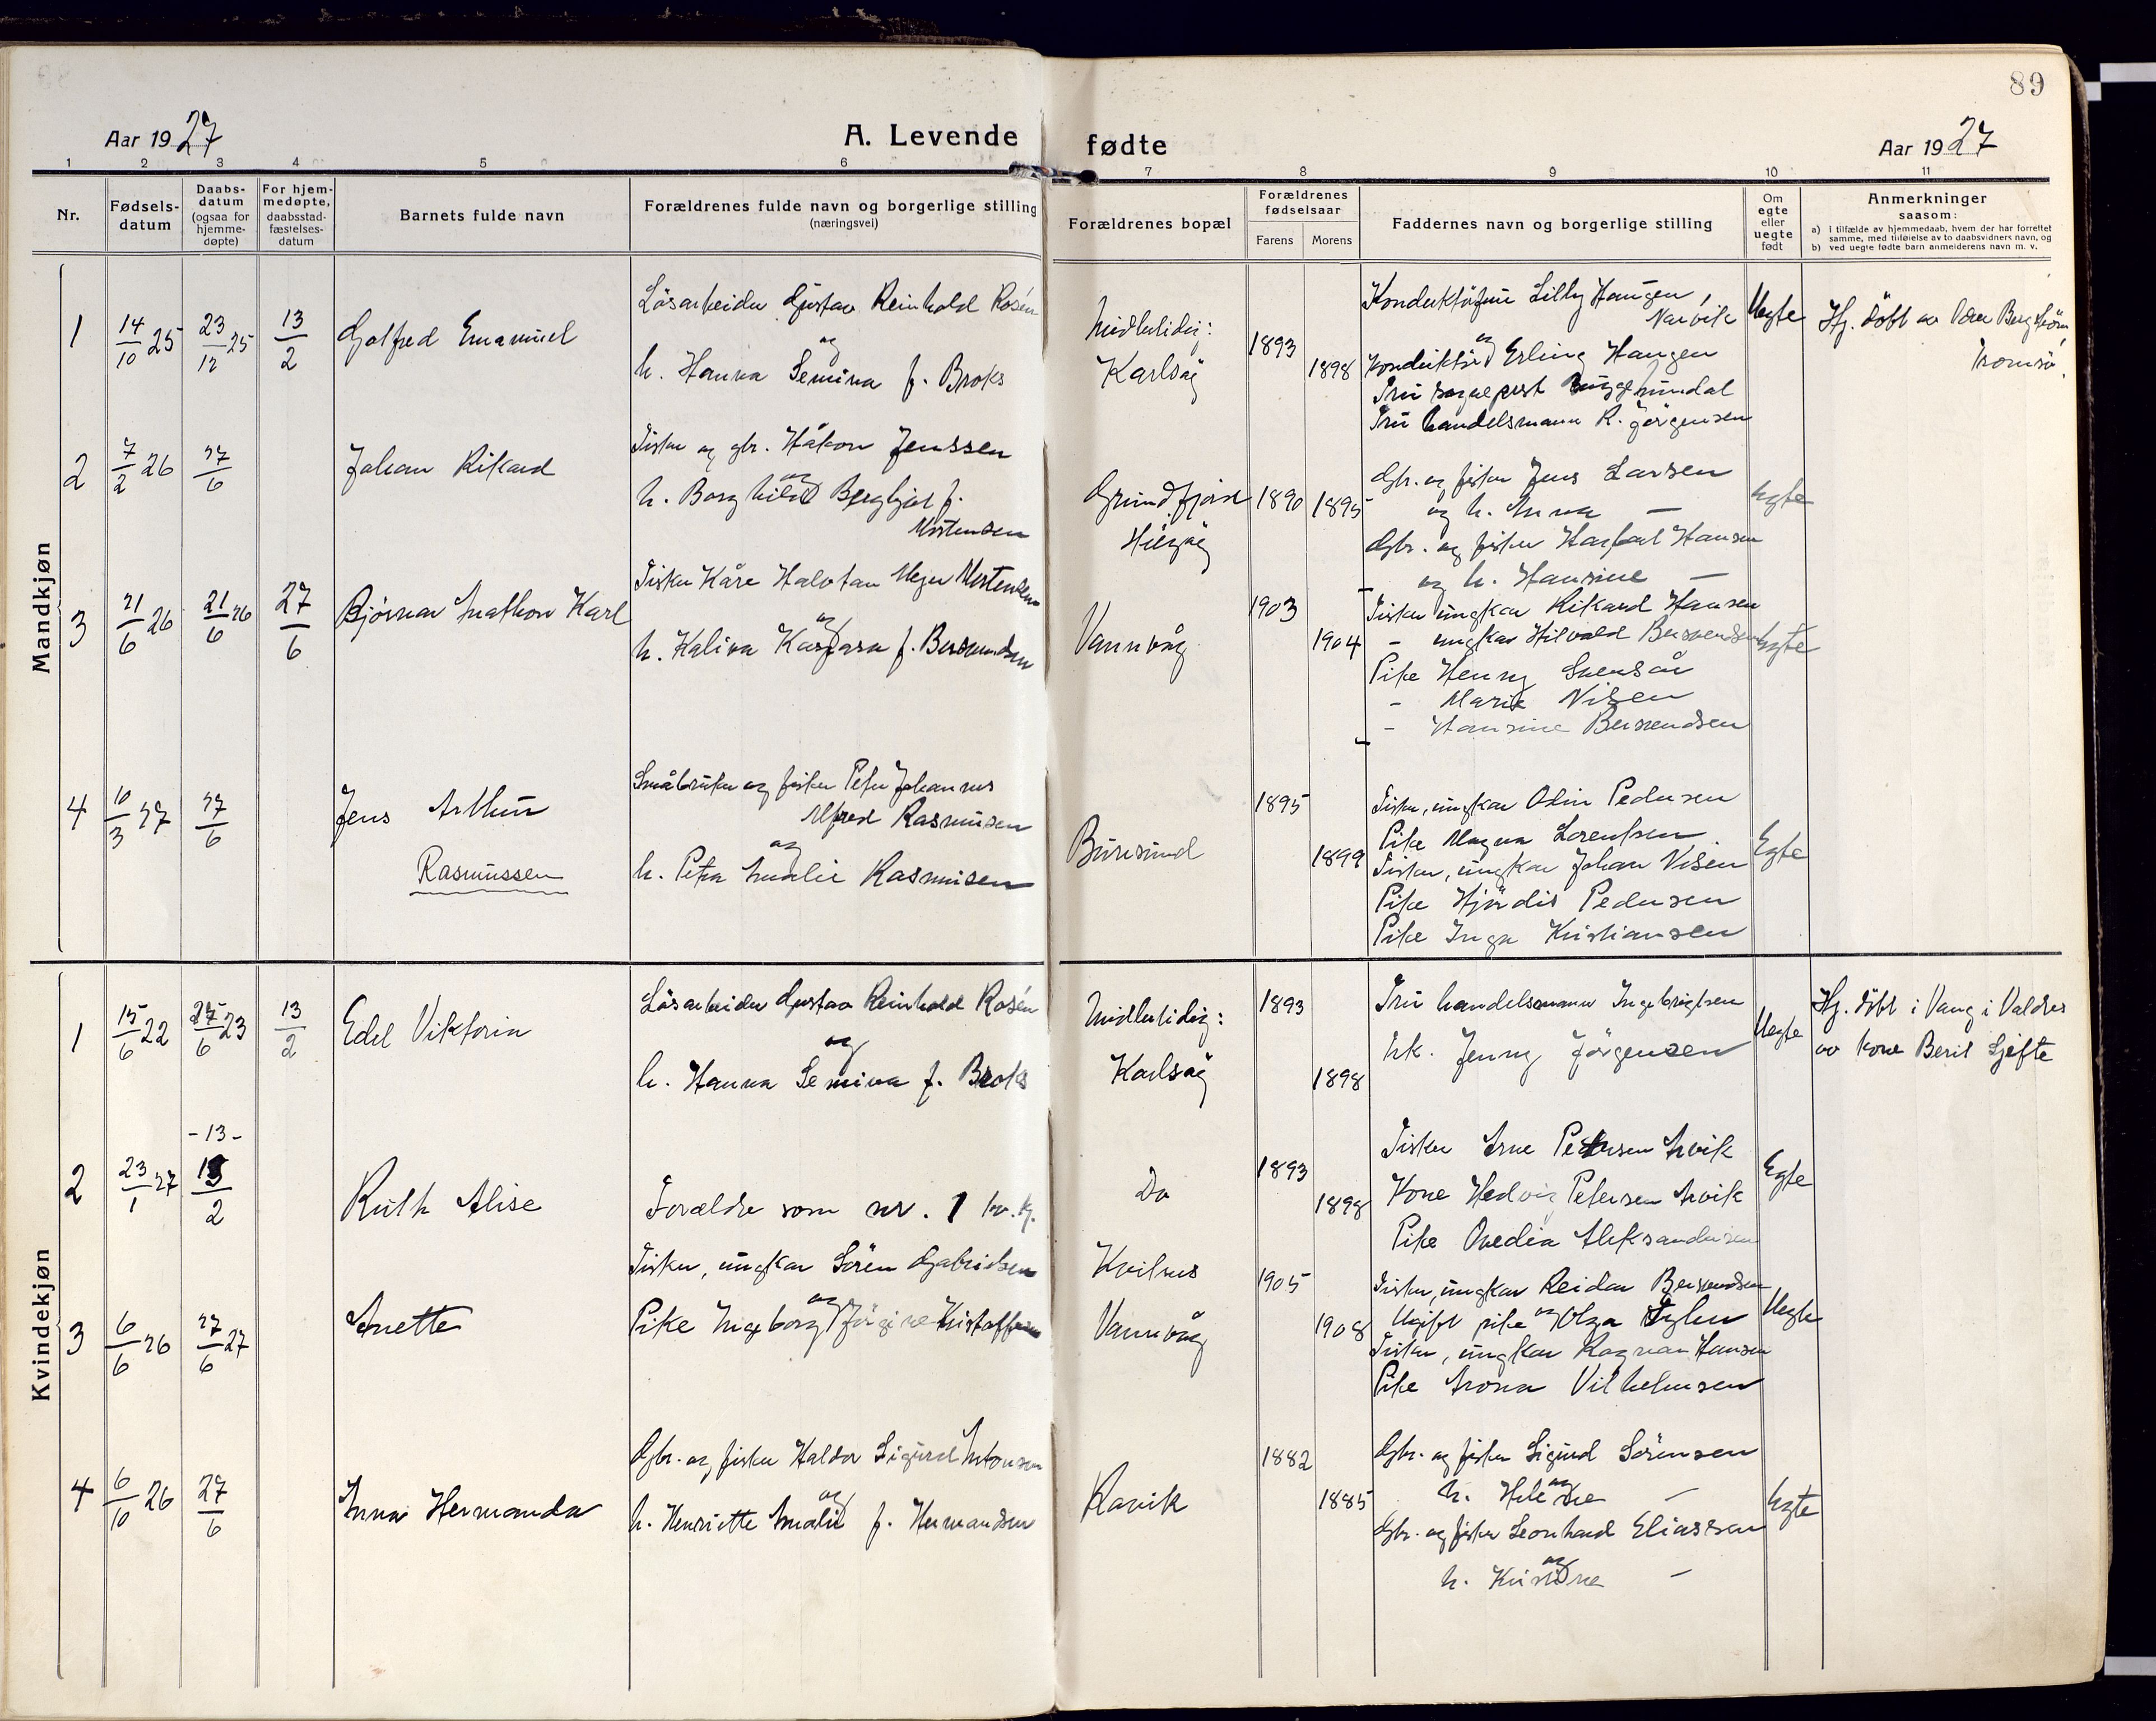 89
Aar 1927
A. Levende
fødte
Aar 1927
1 2 3 4 5 6 7 8 9 10 11
Nr.
Fødsels-
datum
Daabs-
datum
(ogsaa for
hjemme-
døpte)
For hjem-
medøpte,
daabsstad-
fæstelses-
datum
Barnets fulde navn
Forældrenes fulde navn og borgerlige stilling
(næringsvei)
Forældrenes bopæl
Forældrenes
fødselsaar
Farens
Morens
Faddernes navn og borgerlige stilling
Om
egte
eller
uegte
født
Anmerkninger
saasom:
a) i tilfælde av hjemmedaab, hvem der har forrettet
samme, med tilføielse av to daabsvidners navn, og
b) ved uegte fødte barn anmelderens navn m. v.
Mandkjøn
1
14/10 25
23/12 25
13/2
Golfred Emanuel
Lösarbeider Gustav Reinhold Rosén
og
h. Hanna Semina f. Broks
Midlertidig:
Karlsøy
1893
1898
Lilly Haugen,
Narvik
og
Konduktör Erling Haugen
Fru sogneprest
Fru handelsmann R. Jörgensen
Uegte
Hj. döbt av
Tromsö.
2
7/2 26
27/6
Johan Rikard
Fisker og gbr. Håkon Jenssen
og
h. Borghild Bergljot f.
Mortensen
Grundfjord
1890
1895
Gbr. og fisker Jens Larsen
og h. Anna —
Gbr. og fisker Hansen
og h. Hansine —
Egte
3
21/6 26
21/6 26
27/6
Bjørnar Anathon Karl
Fisker Kåre Halvtan Meyer Mortensen
og
h. Kalina Kaspara f. Bersvendsen
Vannvåg
1903
1904
Fisker ungkar Rikard Hansen
- ungkar Hilvald Bersvendsen
Pike Henny
- Marie Nisen
- Hansine Bersvendsen
Egte
4
10/3 27
27/6
Jens Arthur
Rasmussen
Småbruker og fisker Peter Johannes
Alfred Rasmusen
og
h. Petra Amalie Rasmusen
Buresund
1895
1899
Fisker, ungkar Odin Pedersen
Pike Magna Lorentsen
Fisker, ungkar Johan Nisen
Pike Hjördis Pedersen
Pike Inga Kristiansen
Egte
Kvindekjøn
1
15/6 22
25/6 23
13/2
Edel Viktoria
Lösarbeider Gustav Reinhold Rosén
og
h. Hanna Semina f. Broks
Midlertidig:
Karlsøy
1893
1898
Fru handelsmann Ingebrigtsen
frk. Jenny Jörgensen
Uegte
Hj. döbt i Vang i Valdres
av kone Berit
2
23/1 27
-13-
13/2
Ruth Alise
Forældre som nr. 1 kv. kj.
Do
1893
1898
Fisker Arne Petersen Arvik
Kone Hedvig Petersen Arvik
Pike Ovedia Aleksandersen
Egte
3
6/6 26
27/6 27
Anette
Fisker, ungkar Sören Gabrielsen
og
Pike Ingeborg Jörgine Kristoffersen
Vannvåg
1905
1908
Fisker, ungkar Reidar Bersvendsen
Ugift pike og Olga
Fisker, ungkar Ragnar Hansen
Pike Arona Vilhelmsen
Uegte
4
6/10 26
27/6
Anna Hermanda
Gbr. og fisker Haldor Sigurd Antonsen
og
h. Henriette Amalie f. Hermandsen
Ravik
1882
1885
Gbr. og fisker Sigurd Sörensen
og
h. Helene —
Gbr. og fisker Leonhard Eliassen
og
h. Kristine —
Egte